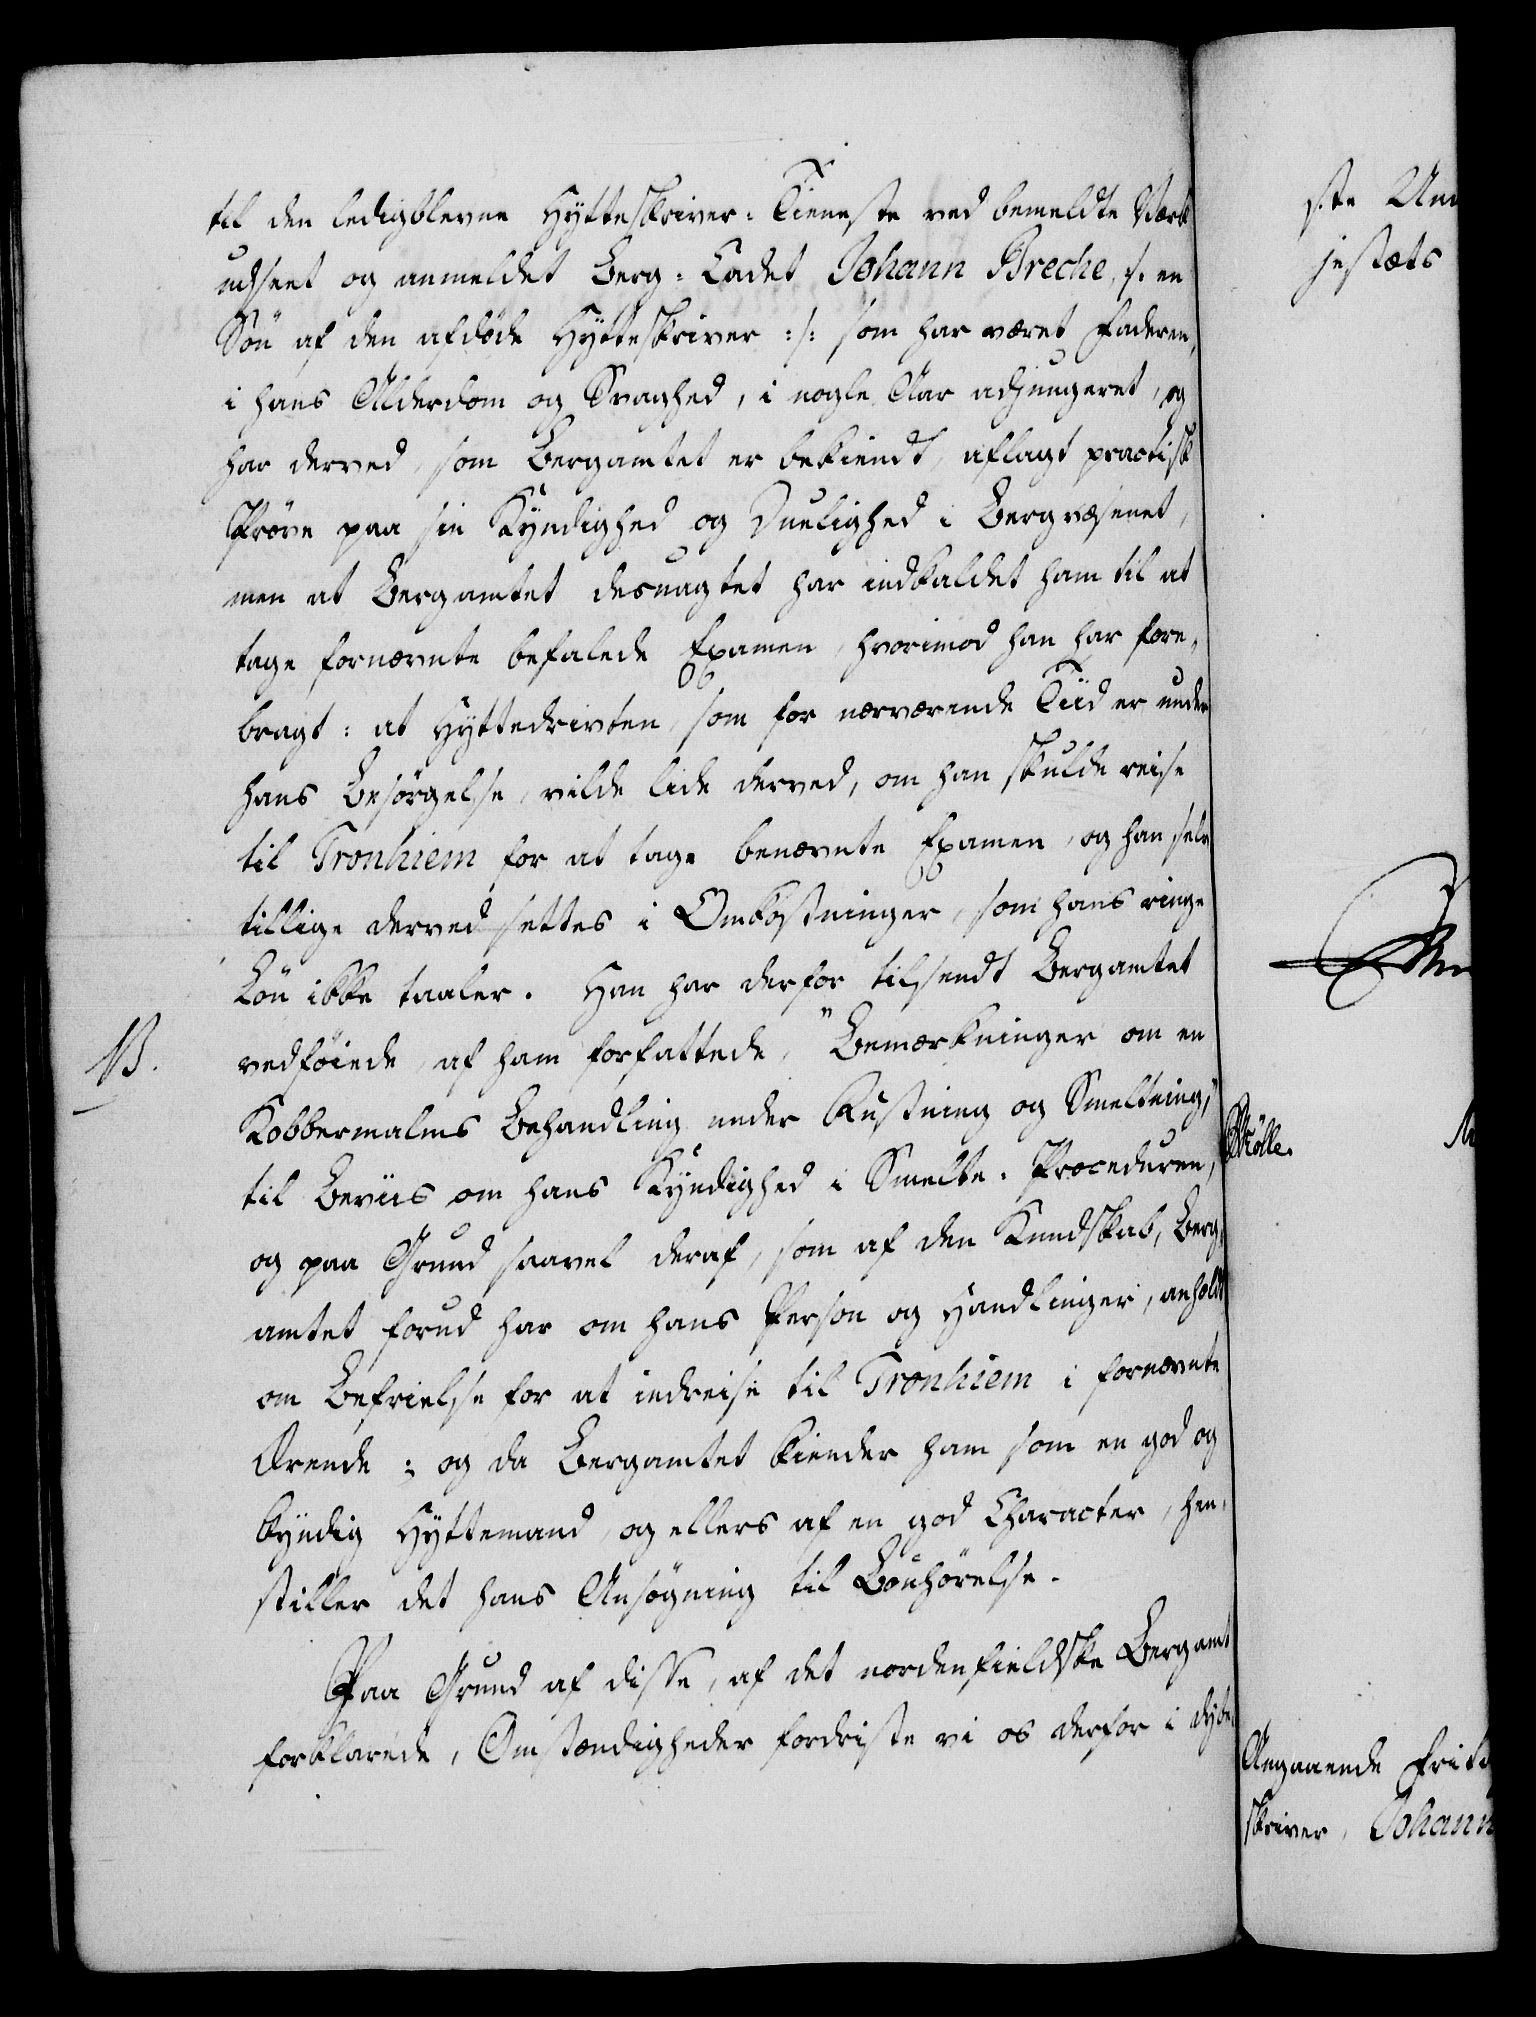 til den ledigblevne Hytteskriver-Tieneste ved bemeldte Værk
udseet og anmeldet Berg-Cadet Johann Breche, /: en
Søn af den afdøde Hytteskriver :/: som har været Faderen,
i hans Alderdom og Svaghed, i nogle Aar adjungeret, og
har derved, som Bergamtet er bekiendt, aflagt practisk
Prøve paa sin Kyndighed og Duelighed i Bergvæsenet,
men at Bergamtet desuagtet har indkaldet ham til at
tage fornævnte befalede Examen, hvorimod han har fore-
bragt: at Hyttedrivten, som for nærværende Tiid er under
hans Besørgelse, vilde lide derved, om han skulde reise
til Tronhiem for at tage benævnte Examen, og han selv
tillige derved settes i Omkostninger, som hans ringe
Løn ikke taaler. Han har derfor tilsendt Bergamtet
vedføiede, af ham forfattede, "Bemærkninger om en
Kobbermalms Behandling under Rustning og Smeltning,"
til Beviis om hans Kyndighed i Smelte-Proceduren,
og paa Grund saavel deraf, som af den Kundskab, Berg-
amtet forud har om hans Person og Handlinger, anholdt
om Befrielse for at indreise til Tronhiem i fornævnte
Ærende; og da Bergamtet kiender ham som en god og
kyndig Hyttemand, og ellers af en god Character, hen-
stiller det hans Ansøgning til Bønhørelse.
Paa Grund af disse, af det nordenfieldske Bergamt
forklarede, Omstændigheder fordriste vi os derfor i dybe-
NB.
ste Un
jestæts
Mølle.
Angaaende Frita
skriver, Johann